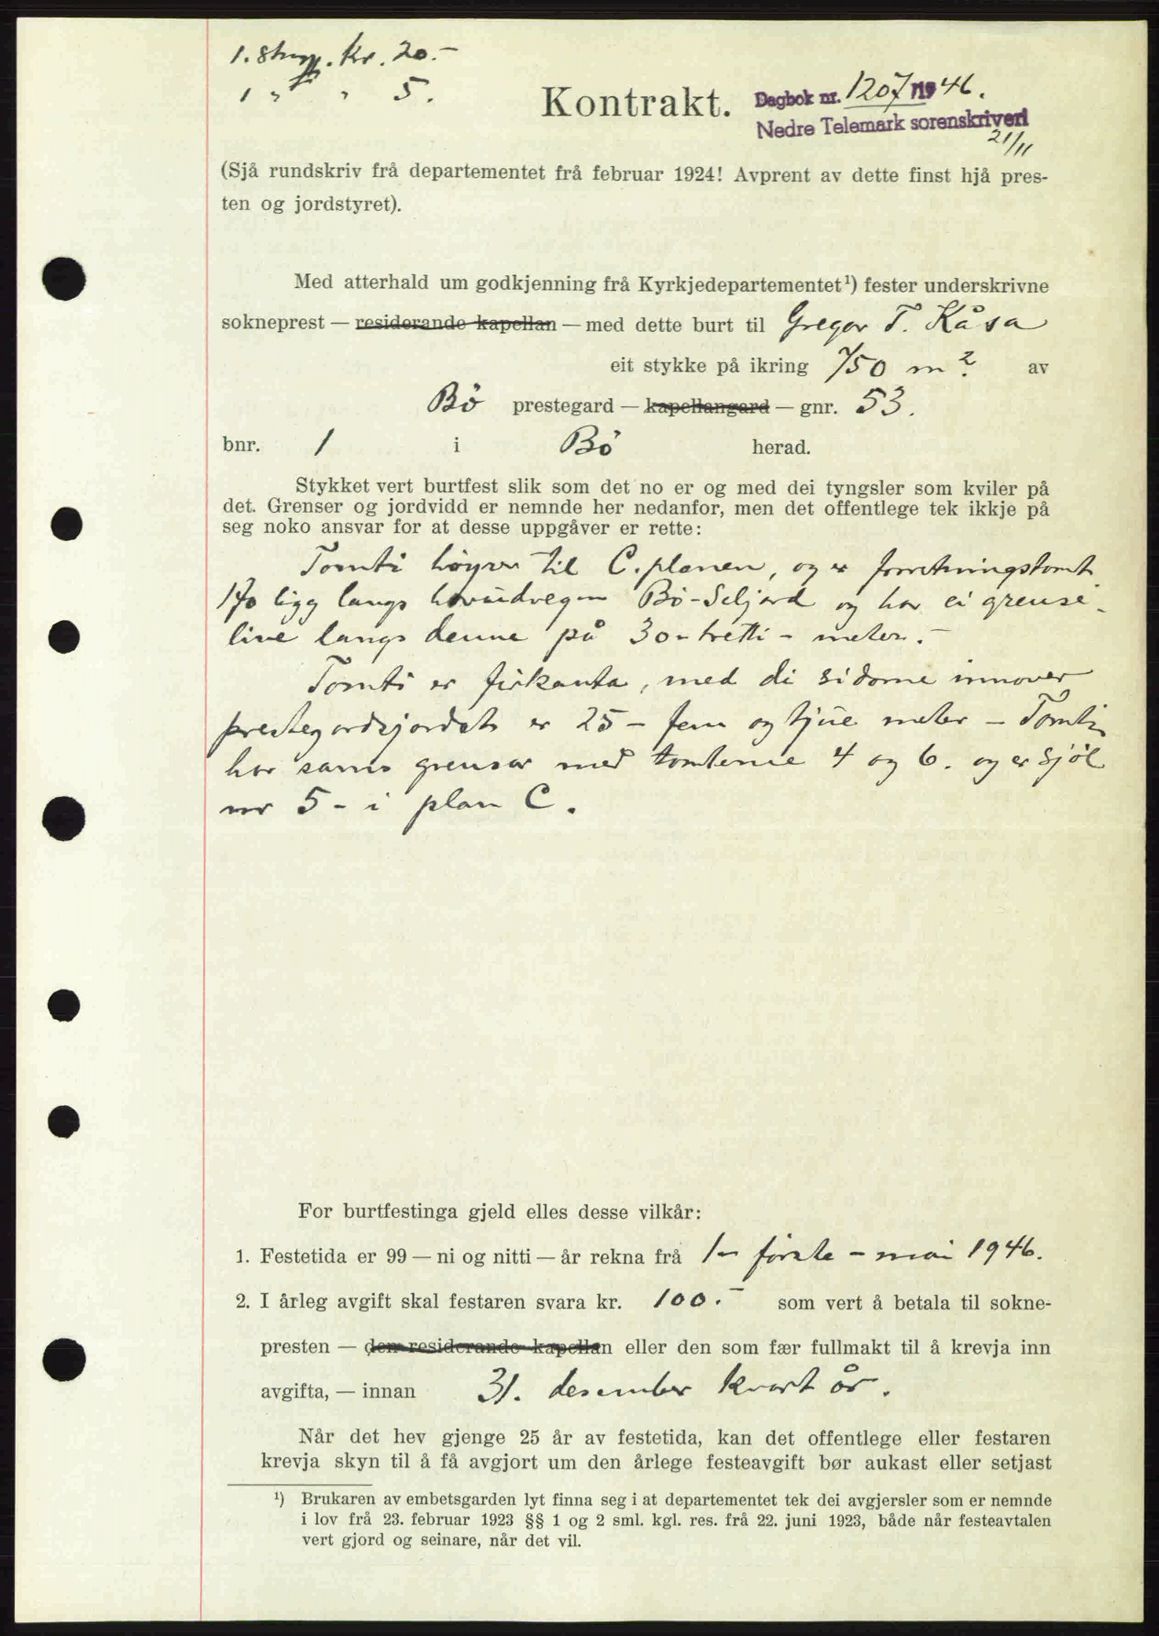 1. Stmpl. Kr. 20.-
1 " " 5.
Kontrakt.
Dagbok nr. 1207/1946.
Nedre Telemark sorenskriveri
21/11
(Sjå rundskriv frå departementet frå februar 1924! Avprent av dette finst hjå pres-
ten og jordstyret).
Med atterhald um godkjenning frå Kyrkjedepartementet¹) fester underskrivne
sokneprest — residerande kapellan — med dette burt til Gregor T. Kåsa
eit stykke på ikring 750 m². av
Bö prestegard — kapellangard — gnr. 53.
bnr. 1 i Bö herad.
Stykket vert burtfest slik som det no er og med dei tyngsler som kviler på
det. Grenser og jordvidd er nemnde her nedanfor, men det offentlege tek ikkje på
seg noko ansvar for at desse uppgåver er rette:
Tomti höyrer til C. planen, og er forretningstomt
ligg langs hovudvegen Bö-Seljord og har ei grense-
line langs denne på 30-tretti- meter.-
Tomti er firkanta, med di sidorne innover
prestegardsjordet er 25 - fem og tjue meter - Tomti
har sams grensar med tomterne 4 og 6. og er sjöl
nr 5 - i plan C.
For burtfestinga gjeld elles desse vilkår:
1. Festetida er 99 — ni og nitti — år rekna frå 1- förste - mai 1946.
2. I årleg avgift skal festaren svara kr. 100.- som vert å betala til sokne-
presten — den residerande kapellan eller den som fær fullmakt til å krevja inn
avgifta, — innan 31. desember kvart år.
Når det hev gjenge 25 år av festetida, kan det offentlege eller festaren
krevja skyn til å få avgjort um den årlege festeavgift bør aukast eller setjast
¹) Brukaren av embetsgarden lyt finna seg i at departementet tek dei avgjersler som er nemnde
i lov frå 23. februar 1923 §§ 1 og 2 sml. kgl. res. frå 22. juni 1923, både når festeavtalen
vert gjord og seinare, når det vil.